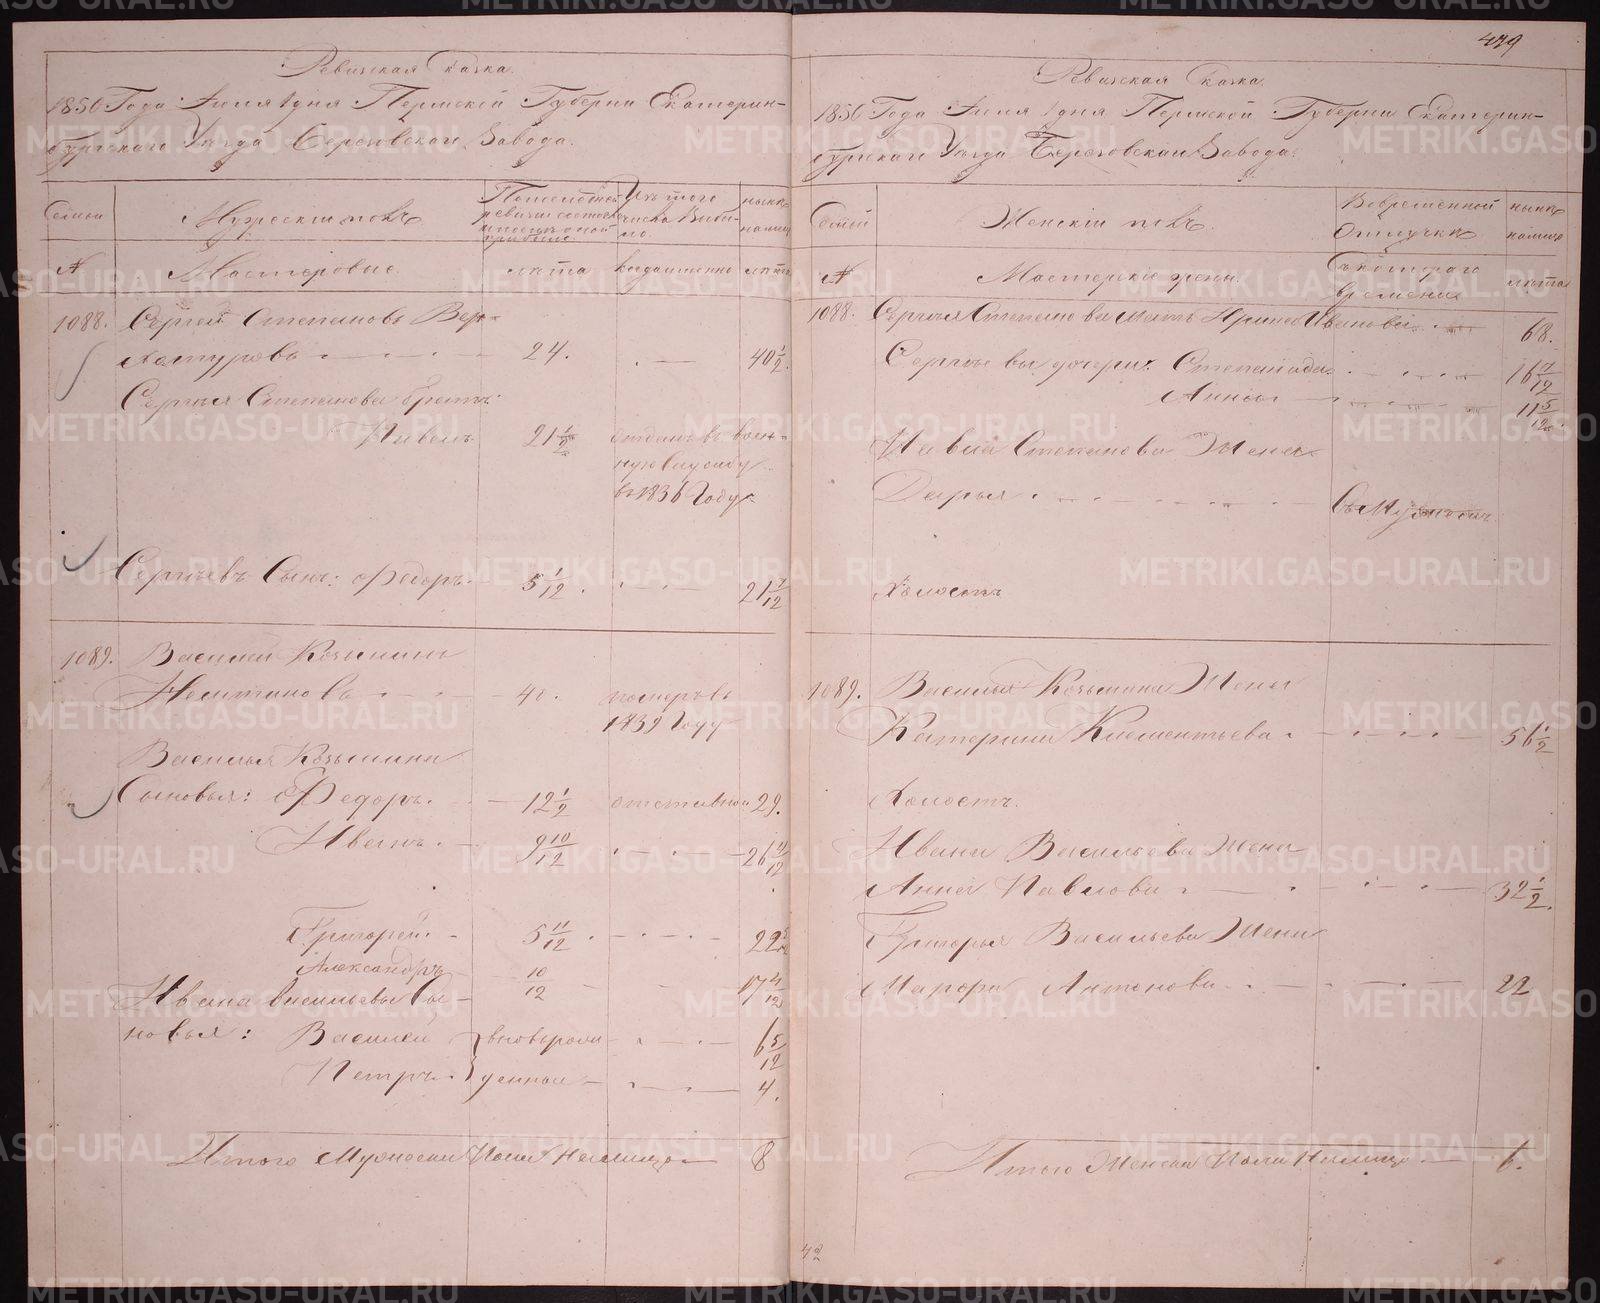 Ревизская Сказка.
1850 Года Июля 1 дня Пермской Губернии Екатерин-
бургскаго Уезда Березовскаго Завода.
Семьи
Мужескій полъ
Последней
ревизіи состоя
ло и после оной
прибыло
Изъ того
числа Выбы-
ло.
ныне
налицо
№
Мастеровые.
лета
когда именно
лета
1088.
Сергей Степановъ Вер-
хотуровъ
24.
40 1/2.
Сергея Степанова братъ:
Павелъ
21 1/2
отданъ въ воен-
ную Службу
въ 1836 Году
Сергеевъ Сынъ: Федоръ.
5 1/12.
21 7/12
1089.
Василей Козьминъ
40.
померъ въ
1839 Году
Василья Козьмина
Сыновья: Федоръ.
12 1/2
отставной
29.
Иванъ.
9 10/12
26
Григорей.
5 11/12
22
Александръ
10/12
17 4/12
Ивана Васильева Сы-
новья: Василей
вновьрож-
6 5/12
Петръ.
денные
4.
Итого Мужеска Пола Налицо
8
479
Ревизская Сказка.
1850 Года Июля 1 дня Пермской Губернии Екатерин-
бургскаго Уезда Березовскаго Завода.
Семьи
Женскій полъ.
Вовременной
Отлучке
ныне
налицо
№
Мастерскіе жены.
Съкотораго
времени
лета
1088.
Сергея Степанова мать Ирина Иванова
68.
Сергеевы дочери: Степанида
16 7/12
Анна
11 5/12
Павла Степанова Жена
Дарья
Съ Мужемъ
Холостъ
1089.
Василья Козьмина Жена
Катерина Климентьева
56 1/2
Холостъ.
Ивана Васильева Жена
Анна Павлова
32 1/2.
Григорья Васильева Жена
Марфа Антонова
22
Итого Женска Пола Налицо
6.
METRIKI.GASO-URAL.RU